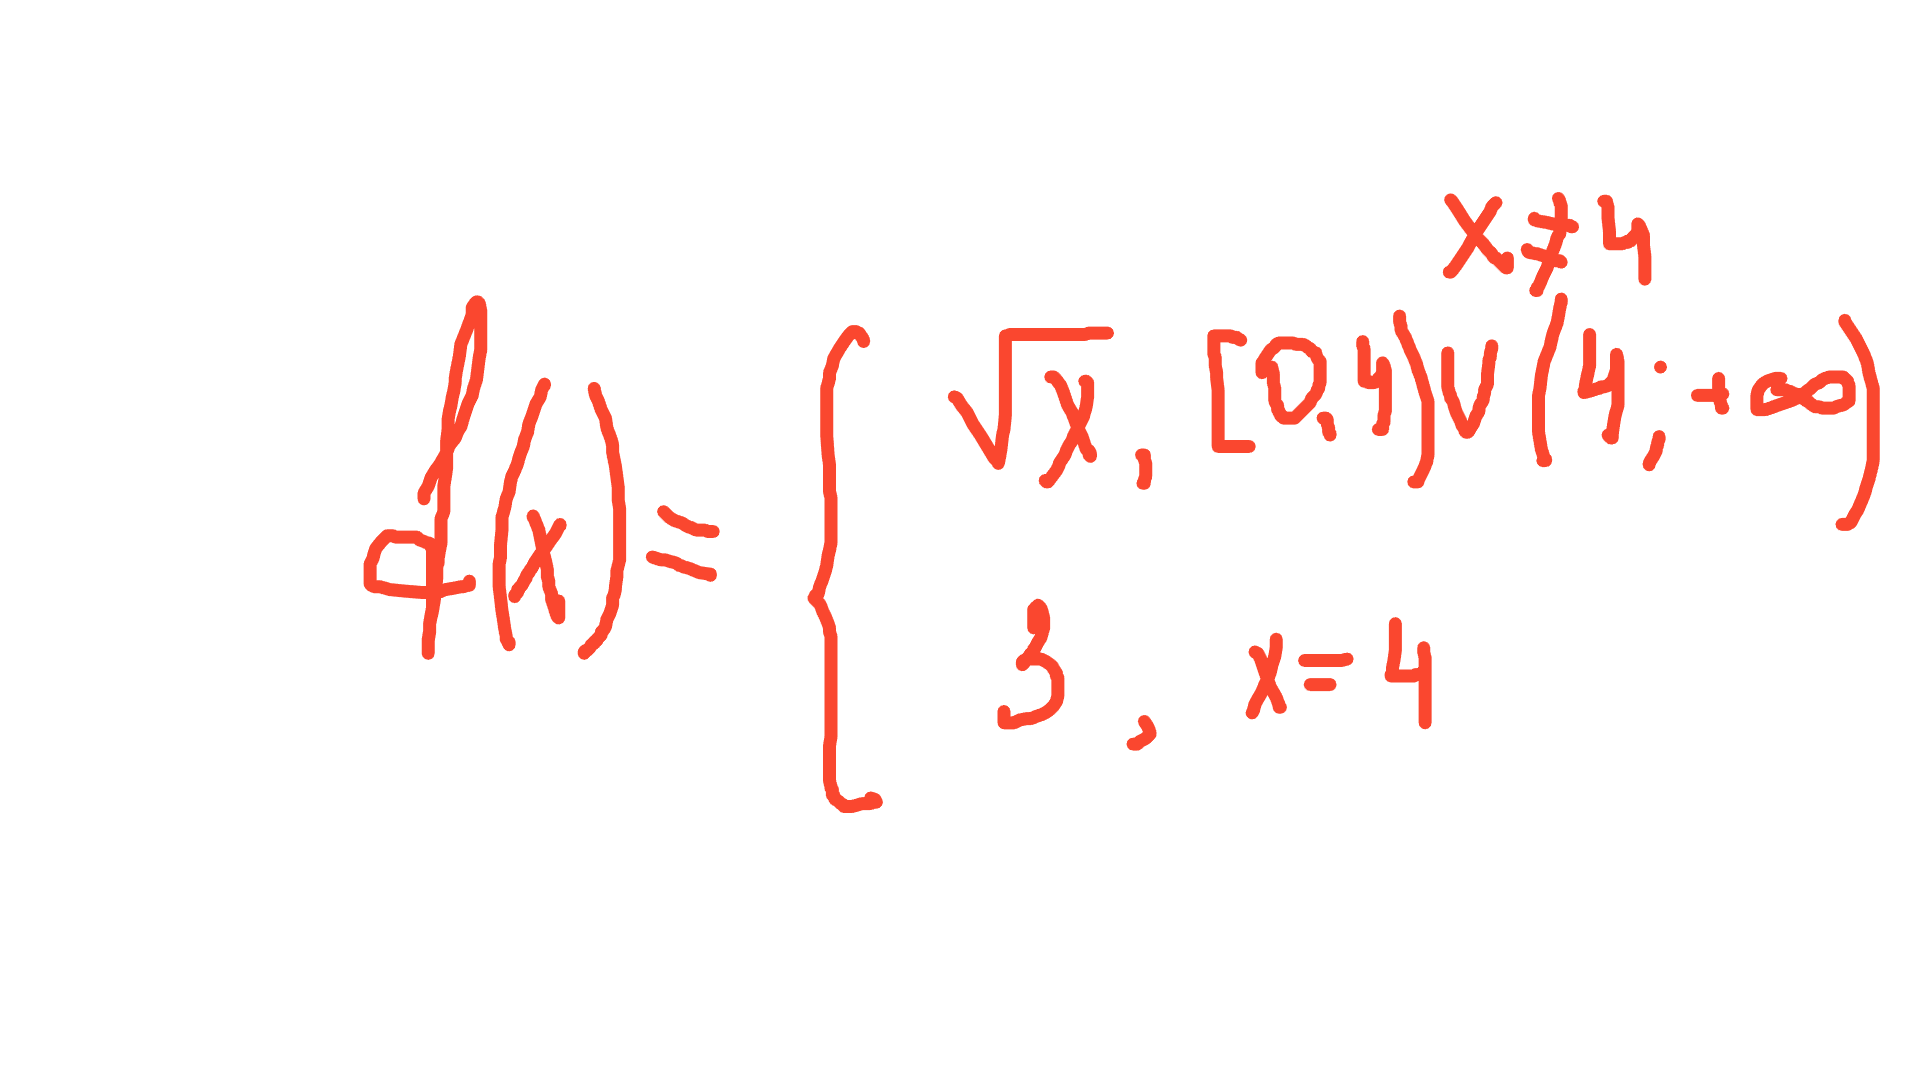 x ≠ 4
f(x) = { √x, [0,4) ∪ (4; +∞)
3, x = 4